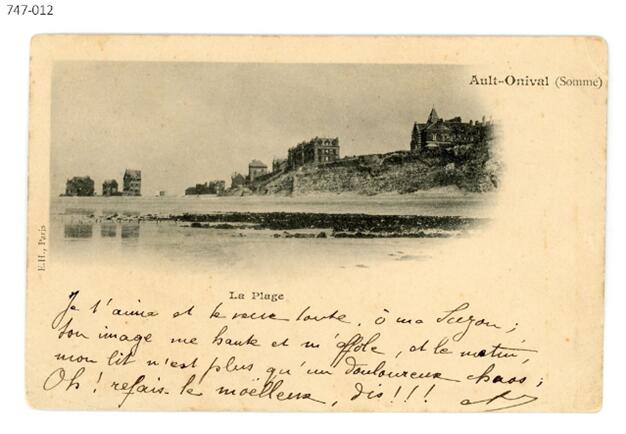 747-012
Ault-Onival (Somme)
E.H., Paris
La Plage
Je t'aime et te veux toute, ô ma Suzon;
ton image me hante et m'affole, et le matin,
mon lit n'est plus qu'un douloureux chaos;
Oh! refais-le moëlleux, dis!!!